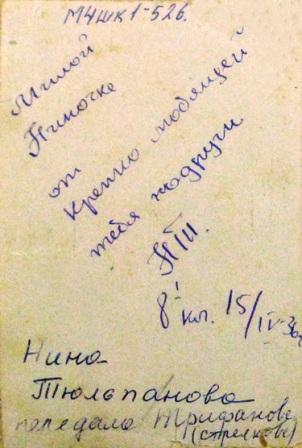 МЧШК1-526.
Милой
Ниночке
от
крепко любящей
тебя подруги
НТШ.
8 кл. 15/IV-36г
Нина
Тюльпанова
передала Трифанове
(Стрелкове)